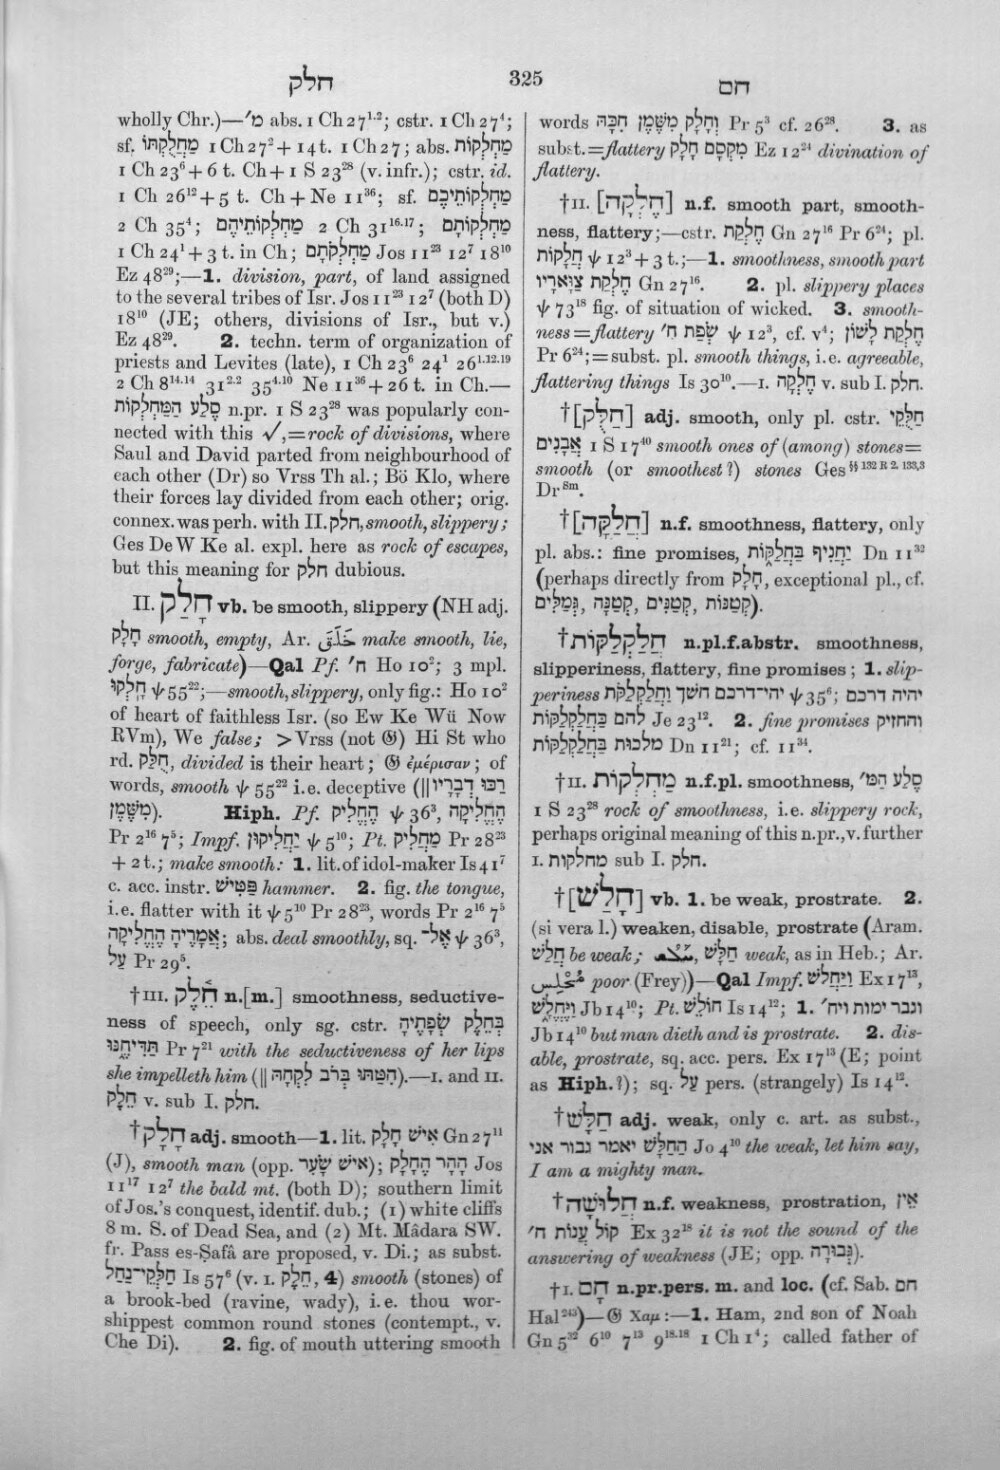 חלק
325
חם
wholly Chr.)—מ׳ abs. 1 Ch 27¹·²; cstr. 1 Ch 27⁴;
sf. מַחֲלֻקְתּוֹ 1 Ch 27² + 14 t. 1 Ch 27; abs. מַחְלְקוֹת
1 Ch 23⁶ + 6 t. Ch + 1 S 23²⁸ (v. infr.); cstr. id.
1 Ch 26¹² + 5 t. Ch + Ne 11³⁶; sf. מַחְלְקוֹתֵיכֶם
2 Ch 35⁴; מַחְלְקוֹתֵיהֶם 2 Ch 31¹⁶·¹⁷; מַחְלְקוֹתָם
1 Ch 24¹ + 3 t. in Ch; מַחְלְקֹתָם Jos 11²³ 12⁷ 18¹⁰
Ez 48²⁹;—1. division, part, of land assigned
to the several tribes of Isr. Jos 11²³ 12⁷ (both D)
18¹⁰ (JE; others, divisions of Isr., but v.)
Ez 48²⁹. 2. techn. term of organization of
priests and Levites (late), 1 Ch 23⁶ 24¹ 26¹·¹²·¹⁹
2 Ch 8¹⁴·¹⁴ 31²·² 35⁴·¹⁰ Ne 11³⁶ + 26 t. in Ch.—
סֶלַע הַמַּחְלְקוֹת n.pr. 1 S 23²⁸ was popularly con-
nected with this √, = rock of divisions, where
Saul and David parted from neighbourhood of
each other (Dr) so Vrss Th al.; Bö Klo, where
their forces lay divided from each other; orig.
connex. was perh. with II. חלק, smooth, slippery;
Ges De W Ke al. expl. here as rock of escapes,
but this meaning for חלק dubious.
II. חָלַק vb. be smooth, slippery (NH adj.
חָלָק smooth, empty, Ar. خَلَقَ make smooth, lie,
forge, fabricate)—Qal Pf. ח׳ Ho 10²; 3 mpl.
חָֽלְקוּ ψ 55²²;—smooth, slippery, only fig.: Ho 10²
of heart of faithless Isr. (so Ew Ke Wü Now
RVm), We false; > Vrss (not 𝔊) Hi St who
rd. חֻלַּק, divided is their heart; 𝔊 ἐμέρισαν; of
words, smooth ψ 55²² i.e. deceptive (‖ רַכּוּ דְבָרָיו
מִשֶּׁמֶן). Hiph. Pf. הֶחֱלִיק ψ 36³, הֶחֱלִיקָה
Pr 2¹⁶ 7⁵; Impf. יַחֲלִיקוּן ψ 5¹⁰; Pt. מַחֲלִיק Pr 28²³
+ 2 t.; make smooth: 1. lit. of idol-maker Is 41⁷
c. acc. instr. פַּטִּישׁ hammer. 2. fig. the tongue,
i.e. flatter with it ψ 5¹⁰ Pr 28²³, words Pr 2¹⁶ 7⁵
אֲמָרֶיהָ הֶחֱלִיקָה; abs. deal smoothly, sq. אֶל־ ψ 36³,
עַל Pr 29⁵.
†III. חֵ֫לֶק n.[m.] smoothness, seductive-
ness of speech, only sg. cstr. בְּחֵלֶק שְׂפָתֶיהָ
תַּדִּיחֶנּוּ Pr 7²¹ with the seductiveness of her lips
she impelleth him (‖ הִטַּתּוּ בְּרֹב לִקְחָהּ).—I. and II.
חֵלֶק v. sub I. חלק.
†חָלָק adj. smooth—1. lit. אִישׁ חָלָק Gn 27¹¹
(J), smooth man (opp. אִישׁ שָׂעִר); הָהָר הֶחָלָק Jos
11¹⁷ 12⁷ the bald mt. (both D); southern limit
of Jos.'s conquest, identif. dub.; (1) white cliffs
8 m. S. of Dead Sea, and (2) Mt. Mâdara SW.
fr. Pass es-Ṣafâ are proposed, v. Di.; as subst.
חַלְּקֵי־נַחַל Is 57⁶ (v. I. חֵלֶק, 4) smooth (stones) of
a brook-bed (ravine, wady), i.e. thou wor-
shippest common round stones (contempt., v.
Che Di). 2. fig. of mouth uttering smooth
words וְחָלָק מִשֶּׁמֶן חִכָּהּ Pr 5³ cf. 26²⁸. 3. as
subst. = flattery מִקְסַם חָלָק Ez 12²⁴ divination of
flattery.
†II. [חֶלְקָה] n.f. smooth part, smooth-
ness, flattery;—cstr. חֶלְקַת Gn 27¹⁶ Pr 6²⁴; pl.
חֲלָקוֹת ψ 12³ + 3 t.;—1. smoothness, smooth part
חֶלְקַת צַוָּארָיו Gn 27¹⁶. 2. pl. slippery places
ψ 73¹⁸ fig. of situation of wicked. 3. smooth-
ness = flattery שְׂפַת ח׳ ψ 12³, cf. v⁴; חֶלְקַת לָשׁוֹן
Pr 6²⁴; = subst. pl. smooth things, i.e. agreeable,
flattering things Is 30¹⁰.—I. חֶלְקָה v. sub I. חלק.
†[חַלֻּק] adj. smooth, only pl. cstr. חַלֻּקֵי
אֲבָנִים 1 S 17⁴⁰ smooth ones of (among) stones =
smooth (or smoothest?) stones Ges §§ 132 R 2. 133, 3
Dr Sm.
†[חֲלַקָּה] n.f. smoothness, flattery, only
pl. abs.: fine promises, יַחֲנִיף בַּחֲלַקּוֹת Dn 11³²
(perhaps directly from חָלָק, exceptional pl., cf.
קְטַנּוֹת, קְטַנִּים, קְטַנָּה, גְּמַלִּים).
†חֲלַקְלַקּוֹת n.pl.f.abstr. smoothness,
slipperiness, flattery, fine promises; 1. slip-
periness יהי־דרכם חשׁך וַחֲלַקְלַקֹּת ψ 35⁶; יהיה דרכם
להם כַּחֲלַקְלַקּוֹת Je 23¹². 2. fine promises והחזיק
מלכות בַּחֲלַקְלַקּוֹת Dn 11²¹; cf. 11³⁴.
†II. מַחְלְקוֹת n.f.pl. smoothness, סֶלַע הַמּ׳
1 S 23²⁸ rock of smoothness, i.e. slippery rock,
perhaps original meaning of this n.pr., v. further
I. מחלקות sub I. חלק.
†[חָלַשׁ] vb. 1. be weak, prostrate. 2.
(si vera l.) weaken, disable, prostrate (Aram.
חֲלַשׁ be weak; חַלָּשׁ weak, as in Heb.; Ar.
مُخْلِس poor (Frey))—Qal Impf. וַיַּחֲלֹשׁ Ex 17¹³,
וַיֶּחֱלָשׁ Jb 14¹⁰; Pt. חוֹלֵשׁ Is 14¹²; 1. וגבר ימות ויח׳
Jb 14¹⁰ but man dieth and is prostrate. 2. dis-
able, prostrate, sq. acc. pers. Ex 17¹³ (E; point
as Hiph.?); sq. עַל pers. (strangely) Is 14¹².
†חַלָּשׁ adj. weak, only c. art. as subst.,
הַחַלָּשׁ יאמר גבור אני Jo 4¹⁰ the weak, let him say,
I am a mighty man.
†חֲלוּשָׁה n.f. weakness, prostration, אֵין
קוֹל עֲנוֹת ח׳ Ex 32¹⁸ it is not the sound of the
answering of weakness (JE; opp. גְּבוּרָה).
†I. חָם n.pr.pers. m. and loc. (cf. Sab. חם
Hal²⁴³)—𝔊 Χαμ:—1. Ham, 2nd son of Noah
Gn 5³² 6¹⁰ 7¹³ 9¹⁸·¹⁸ 1 Ch 1⁴; called father of